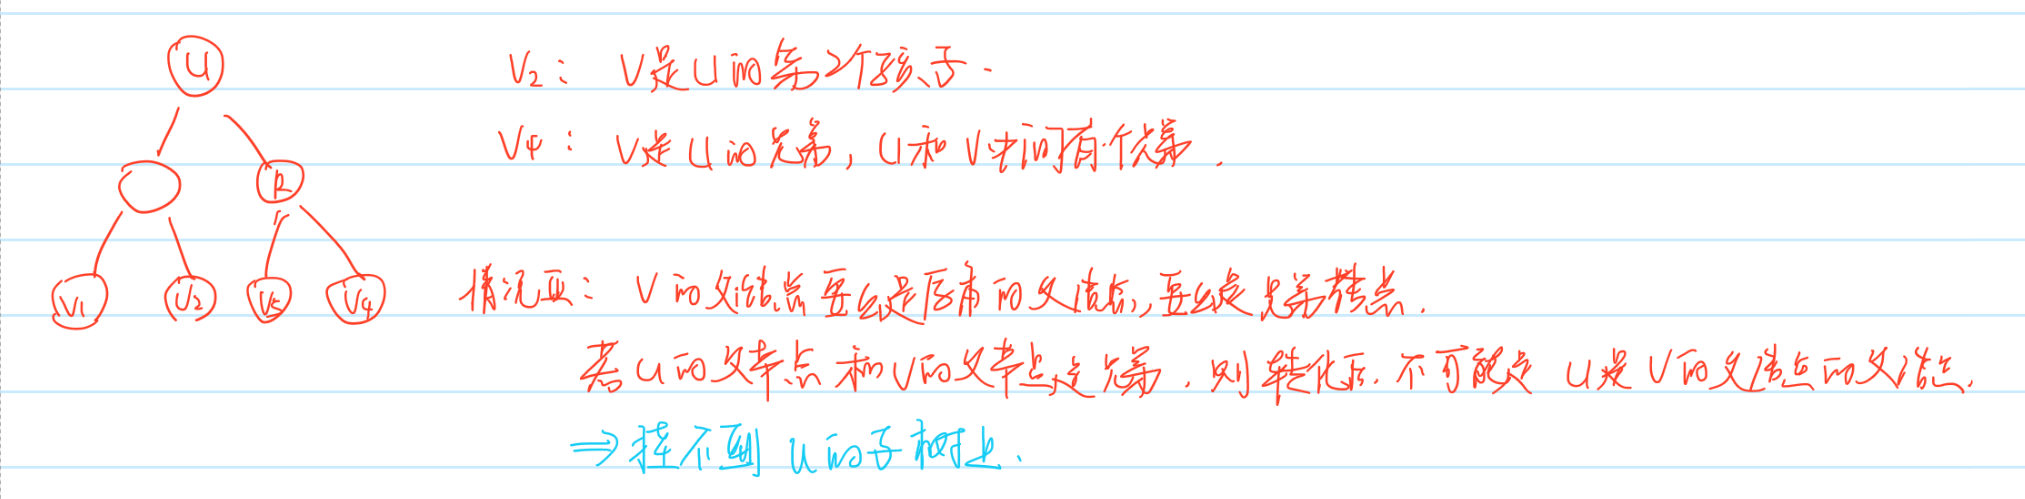 U
R
V1 V2 V3 V4
V2： V是U的第2个孩子.
V4： V是U的兄弟，U和V中间有个兄弟.
情况Ⅲ： V的父结点要么是原来的父结点，要么是兄弟结点.
若U的父节点和V的父节点是兄弟，则转化后，不可能是 U是V的父结点的父结点.
⇒挂不到 U的子树上.